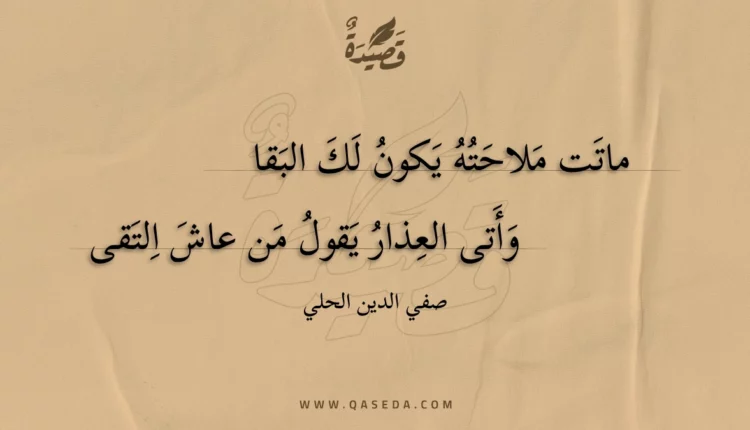 قَصِيْدَةٌ
ماتَت مَلاحَتُهُ يَكونُ لَكَ البَقا
وَأَتى العِذارُ يَقولُ مَن عاشَ اِلتَقى
صفي الدين الحلي
WWW.QASEDA.COM